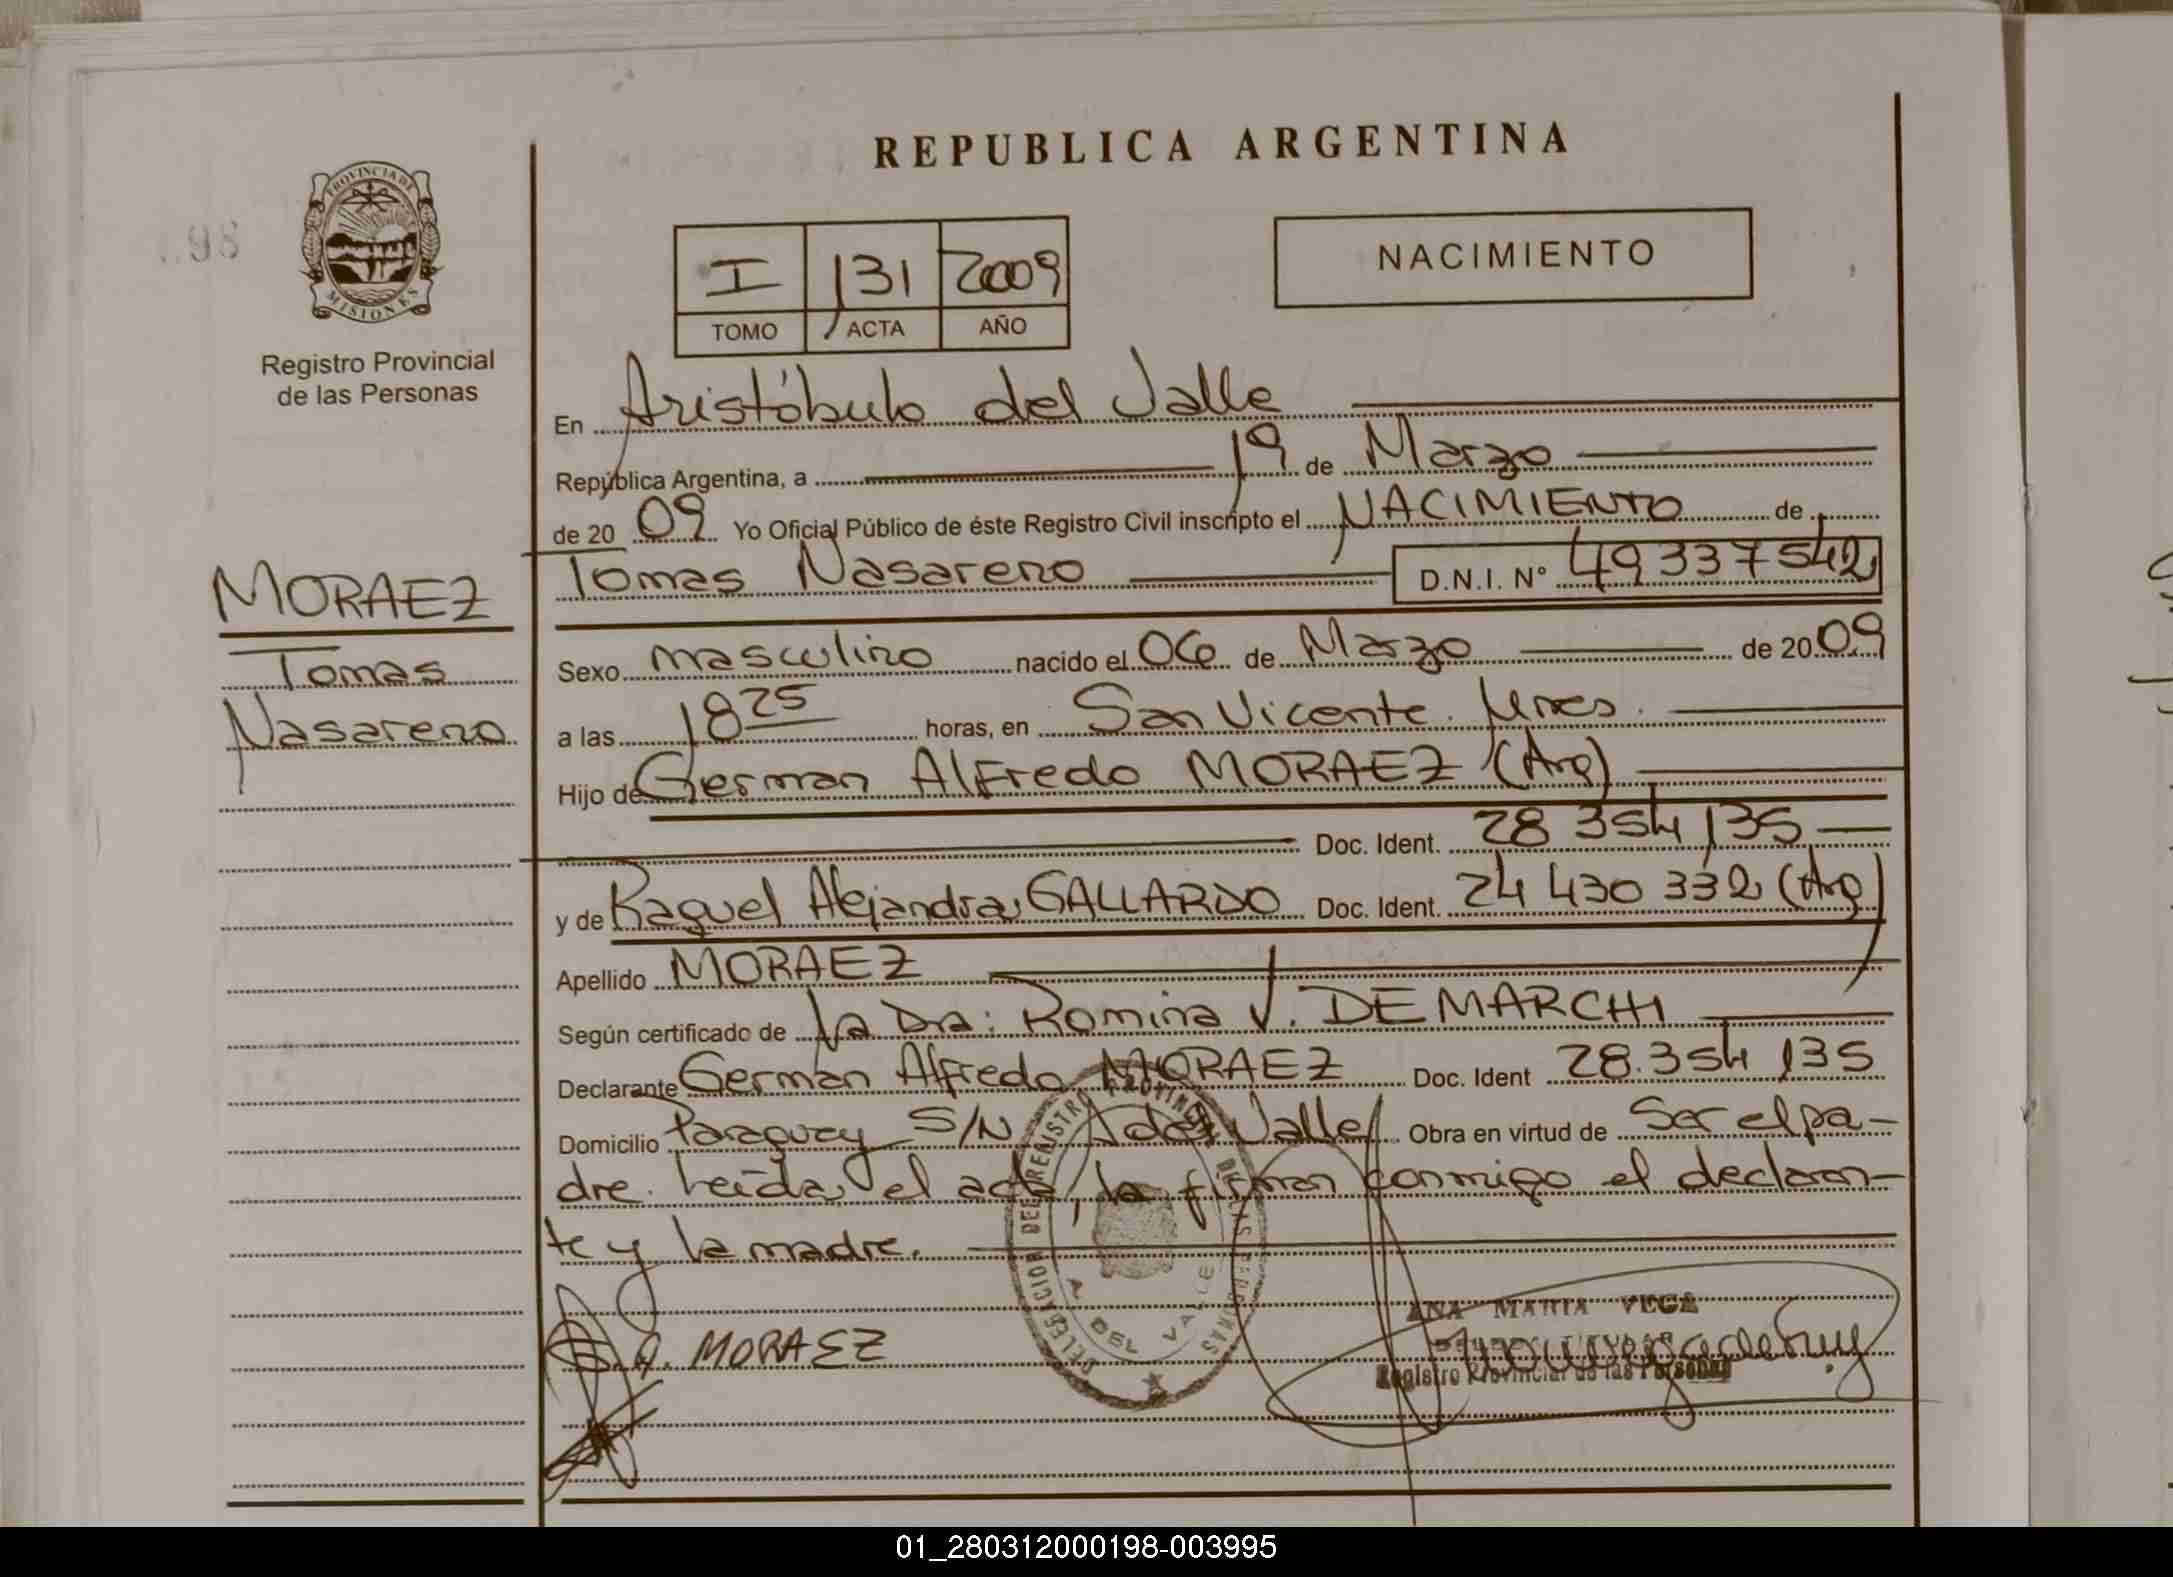 REPUBLICA ARGENTINA
PROVINCIA DE
MISIONES
Registro Provincial
de las Personas
98
I 131 2009
TOMO ACTA AÑO
NACIMIENTO
En Aristóbulo del Valle
República Argentina, a 19 de Marzo
de 20 09 Yo Oficial Público de éste Registro Civil inscripto el NACIMIENTO de
Tomas Nasareno D.N.I. N° 49 337 542
MORAEZ
Tomas
Nasareno
Sexo masculino nacido el 06 de Marzo de 20 09
a las 18 25 horas, en San Vicente. Mnes.
Hijo de German Alfredo MORAEZ (Arg)
Doc. Ident. 28 354 135
y de Raquel Alejandra GALLARDO Doc. Ident. 24 430 332 (Arg)
Apellido MORAEZ
Según certificado de la Dra: Romina V. DEMARCHI
Declarante German Alfredo MORAEZ Doc. Ident 28.354 135
Domicilio Paraguay S/N A del Valle Obra en virtud de Ser el pa-
dre. Leída el acta, la firman conmigo el declaran-
te y la madre.
DELEGACION DEL REGISTRO PROVINCIAL DE LAS PERSONAS
A. DEL VALLE
A. MORAEZ
ANA MARIA VEGA
Registro Provincial de las Personas
01_280312000198-003995